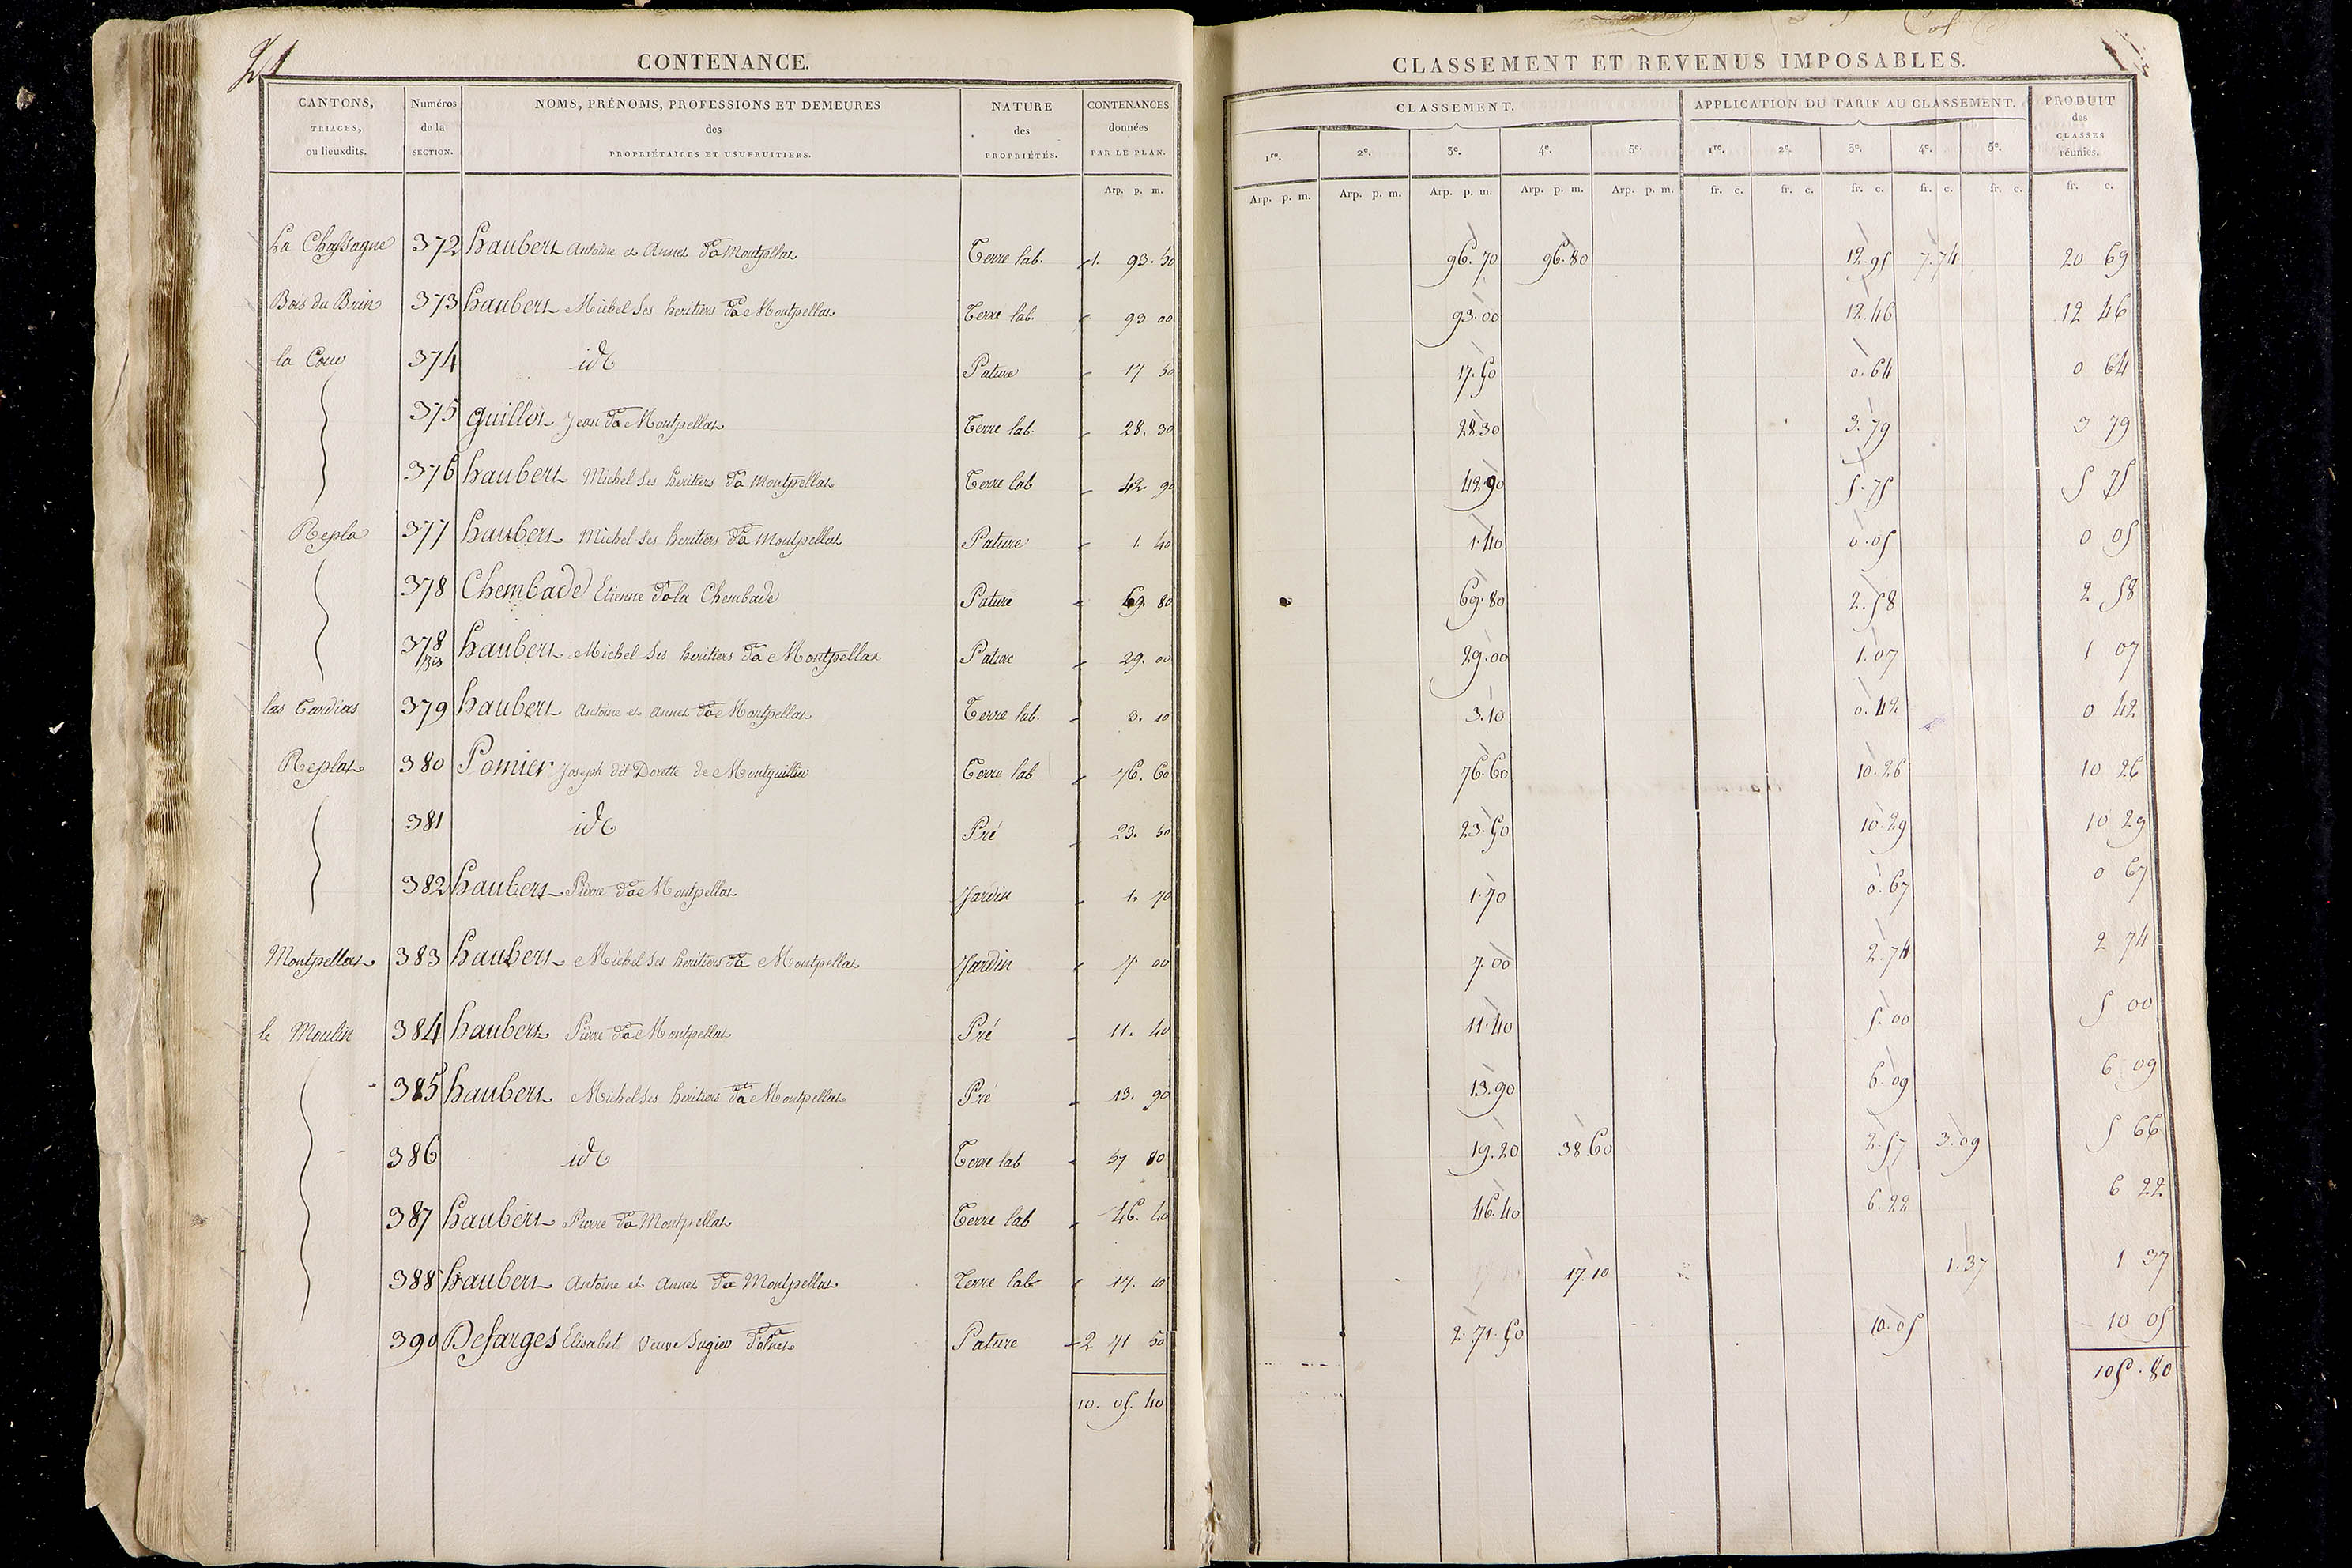 21
CONTENANCE.
CANTONS, TRIAGES, ou lieuxdits. | Numéros de la SECTION. | NOMS, PRÉNOMS, PROFESSIONS ET DEMEURES des PROPRIÉTAIRES ET USUFRUITIERS. | NATURE des PROPRIÉTÉS. | CONTENANCES données PAR LE PLAN.
Arp. p. m.
La Chassagne 372 haubert Antoine et Annet dt a Montpellat Terre lab. 1. 93. 50
Bois du Brin 373 haubert Michel Ses heritiers dt a Montpellat Terre lab. 93 00
la Cour 374 id Pature 17 50
375 guillot Jean dt a Montpellat Terre lab. 28. 30
376 haubert Michel Ses heritiers dt a Montpellat Terre lab 42 90
Repla 377 haubert Michel Ses heritiers dt a Montpellat Pature 1. 40
378 Chembade Etienne dt a la Chembade Pature 69. 80
378 Bis haubert Michel Ses heritiers dt a Montpellat Pature 29. 00
las Tardias 379 haubert Antoine et Annet dt a Montpellat Terre lab. 3. 10
Replat 380 Pomier Joseph dit Dorette de Terre lab. 76. 60
381 id Pré 23. 50
382 haubert Pierre dt a Montpellat Jardin 1. 70
Montpellat 383 haubert Michel Ses heritiers dt a Montpellat Jardin 7 00
le Moulin 384 haubert Pierre dt a Montpellat Pré 11. 40
385 haubert Michel Ses heritiers dt a Montpellat Pré 13. 90
386 id Terre lab 57 80
387 haubert Pierre dt a Montpellat Terre lab 46. 40
388 haubert Antoine et Annet dt a Montpellat Terre lab 17. 10
390 Defarges Elisabet Veuve Pature 2 71 50
10. 05. 40
CLASSEMENT ET REVENUS IMPOSABLES.
CLASSEMENT. | APPLICATION DU TARIF AU CLASSEMENT. | PRODUIT des CLASSES réunies.
1re. 2e. 3e. 4e. 5e. 1re. 2e. 3e. 4e. 5e.
Arp. p. m. Arp. p. m. Arp. p. m. Arp. p. m. Arp. p. m. fr. c. fr. c. fr. c. fr. c. fr. c. fr. c.
96. 70 96. 80 12. 95 7. 74 20 69
93. 00 12. 46 12 46
17. 50 0. 64 0 64
28. 30 3. 79 3 79
42. 90 5. 75 5 75
1. 40 0. 05 0 05
69. 80 2. 58 2 58
29. 00 1. 07 1 07
3. 10 0. 42 0 42
76. 60 10. 26 10 26
23. 50 10. 29 10 29
1. 70 0. 67 0 67
7. 00 2. 74 2 74
11. 40 5. 00 5 00
13. 90 6. 09 6 09
19. 20 38. 60 2. 57 3. 09 5 66
46. 40 6. 22 6 22
17. 10 1. 37 1 37
2. 71. 50 10. 05 10 05
105. 80